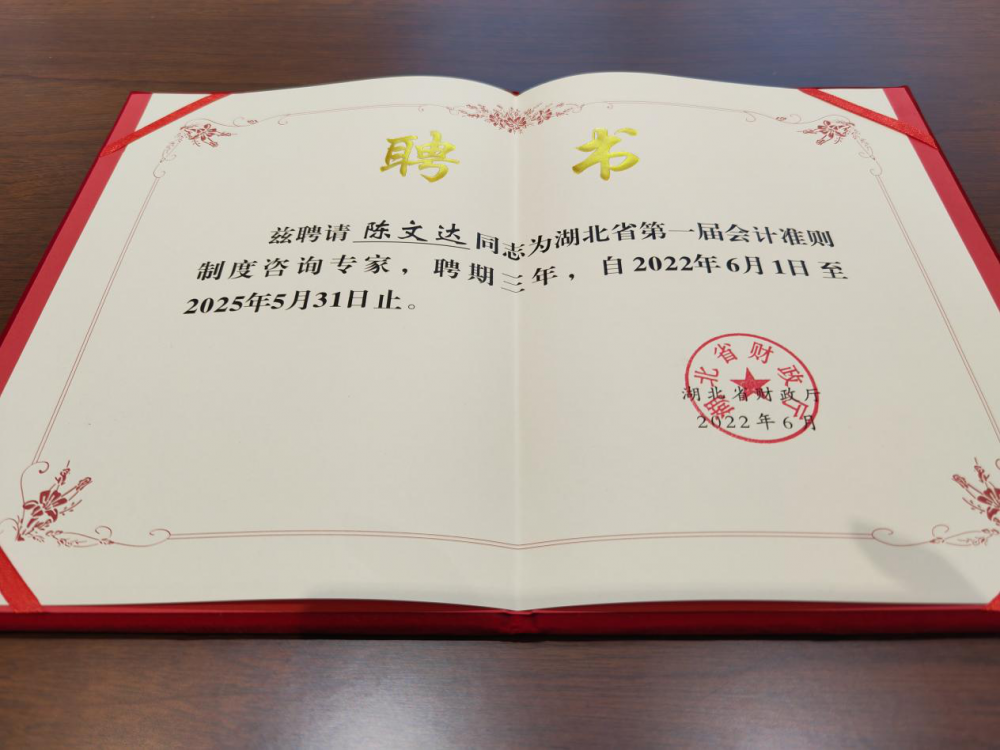 聘 书
兹聘请 陈文达 同志为湖北省第一届会计准则
制度咨询专家，聘期三年，自2022年6月1日至
2025年5月31日止。
湖北省财政厅
湖北省财政厅
2022年6月